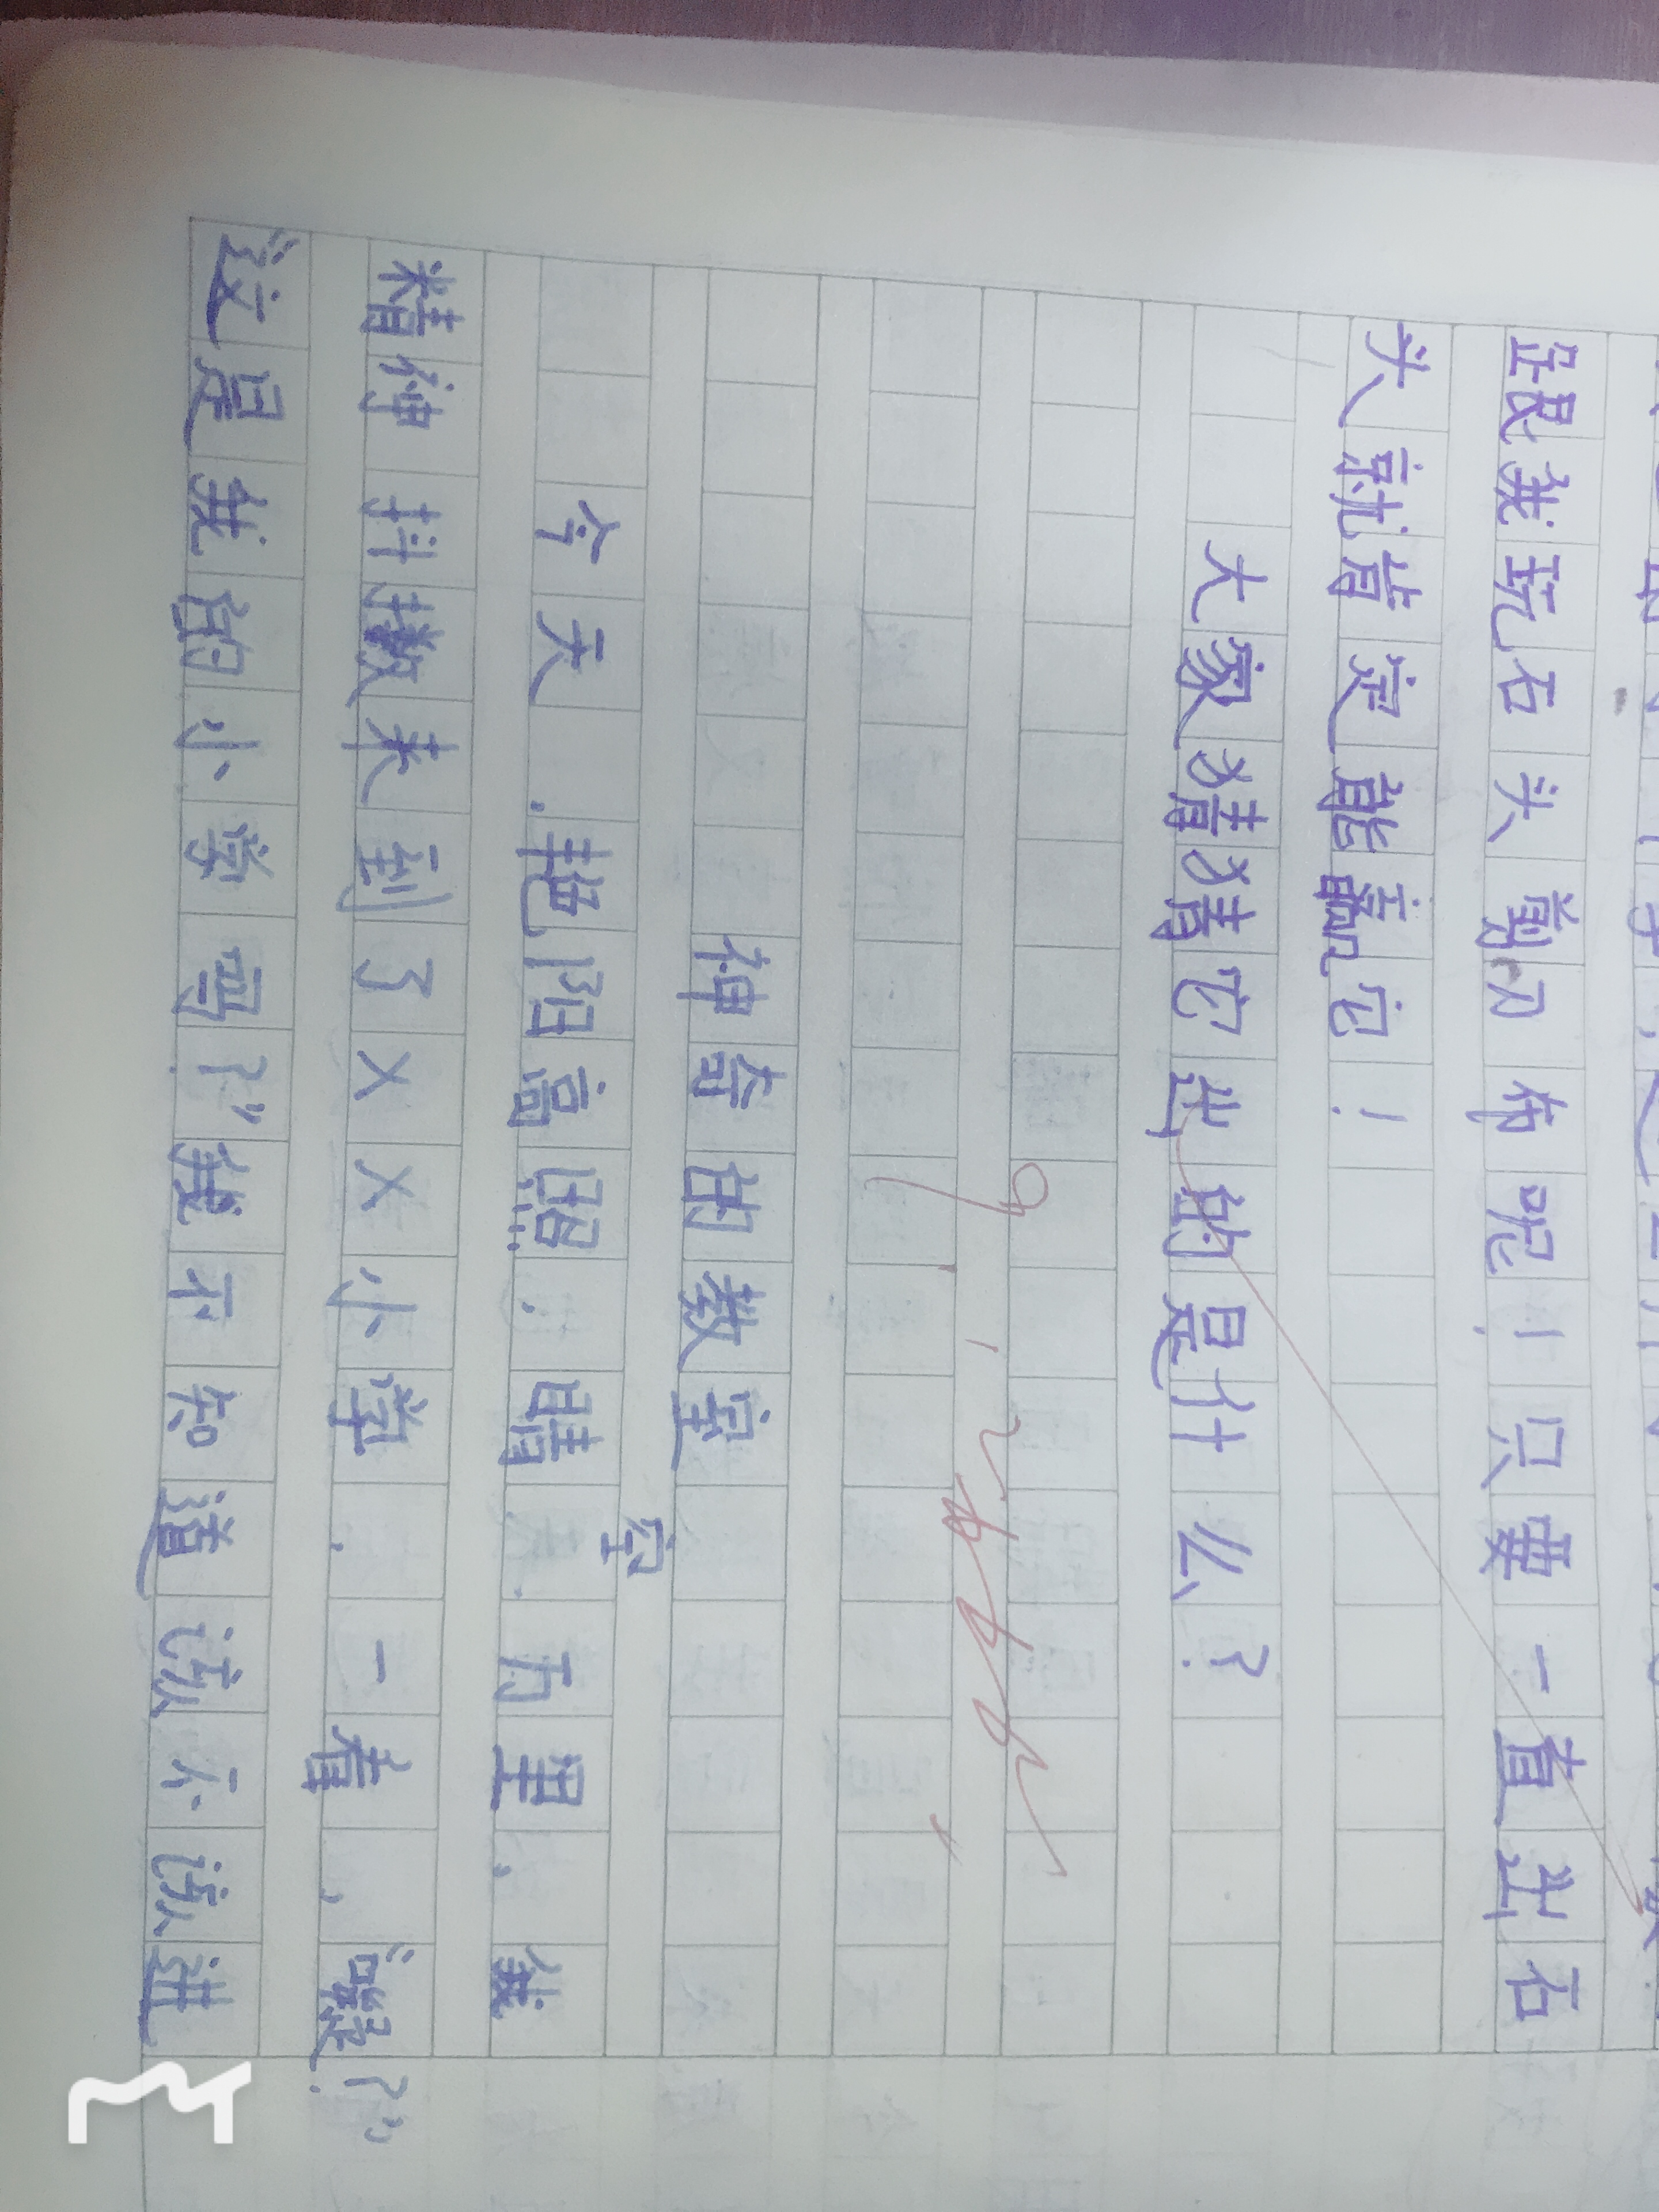 跟我玩石头剪刀布呢！只要一直出石
头就肯定能赢它！
大家猜猜它出的是什么？
神奇的教室
今天，艳阳高照，晴空万里，我
精神抖擞来到了XX小学，一看，“？”
“这是我的小学吗？”我不知道该不该进